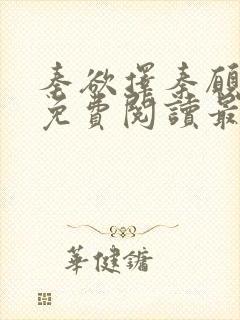 秦欲擇秦願
免費閱讀最
華健鏞